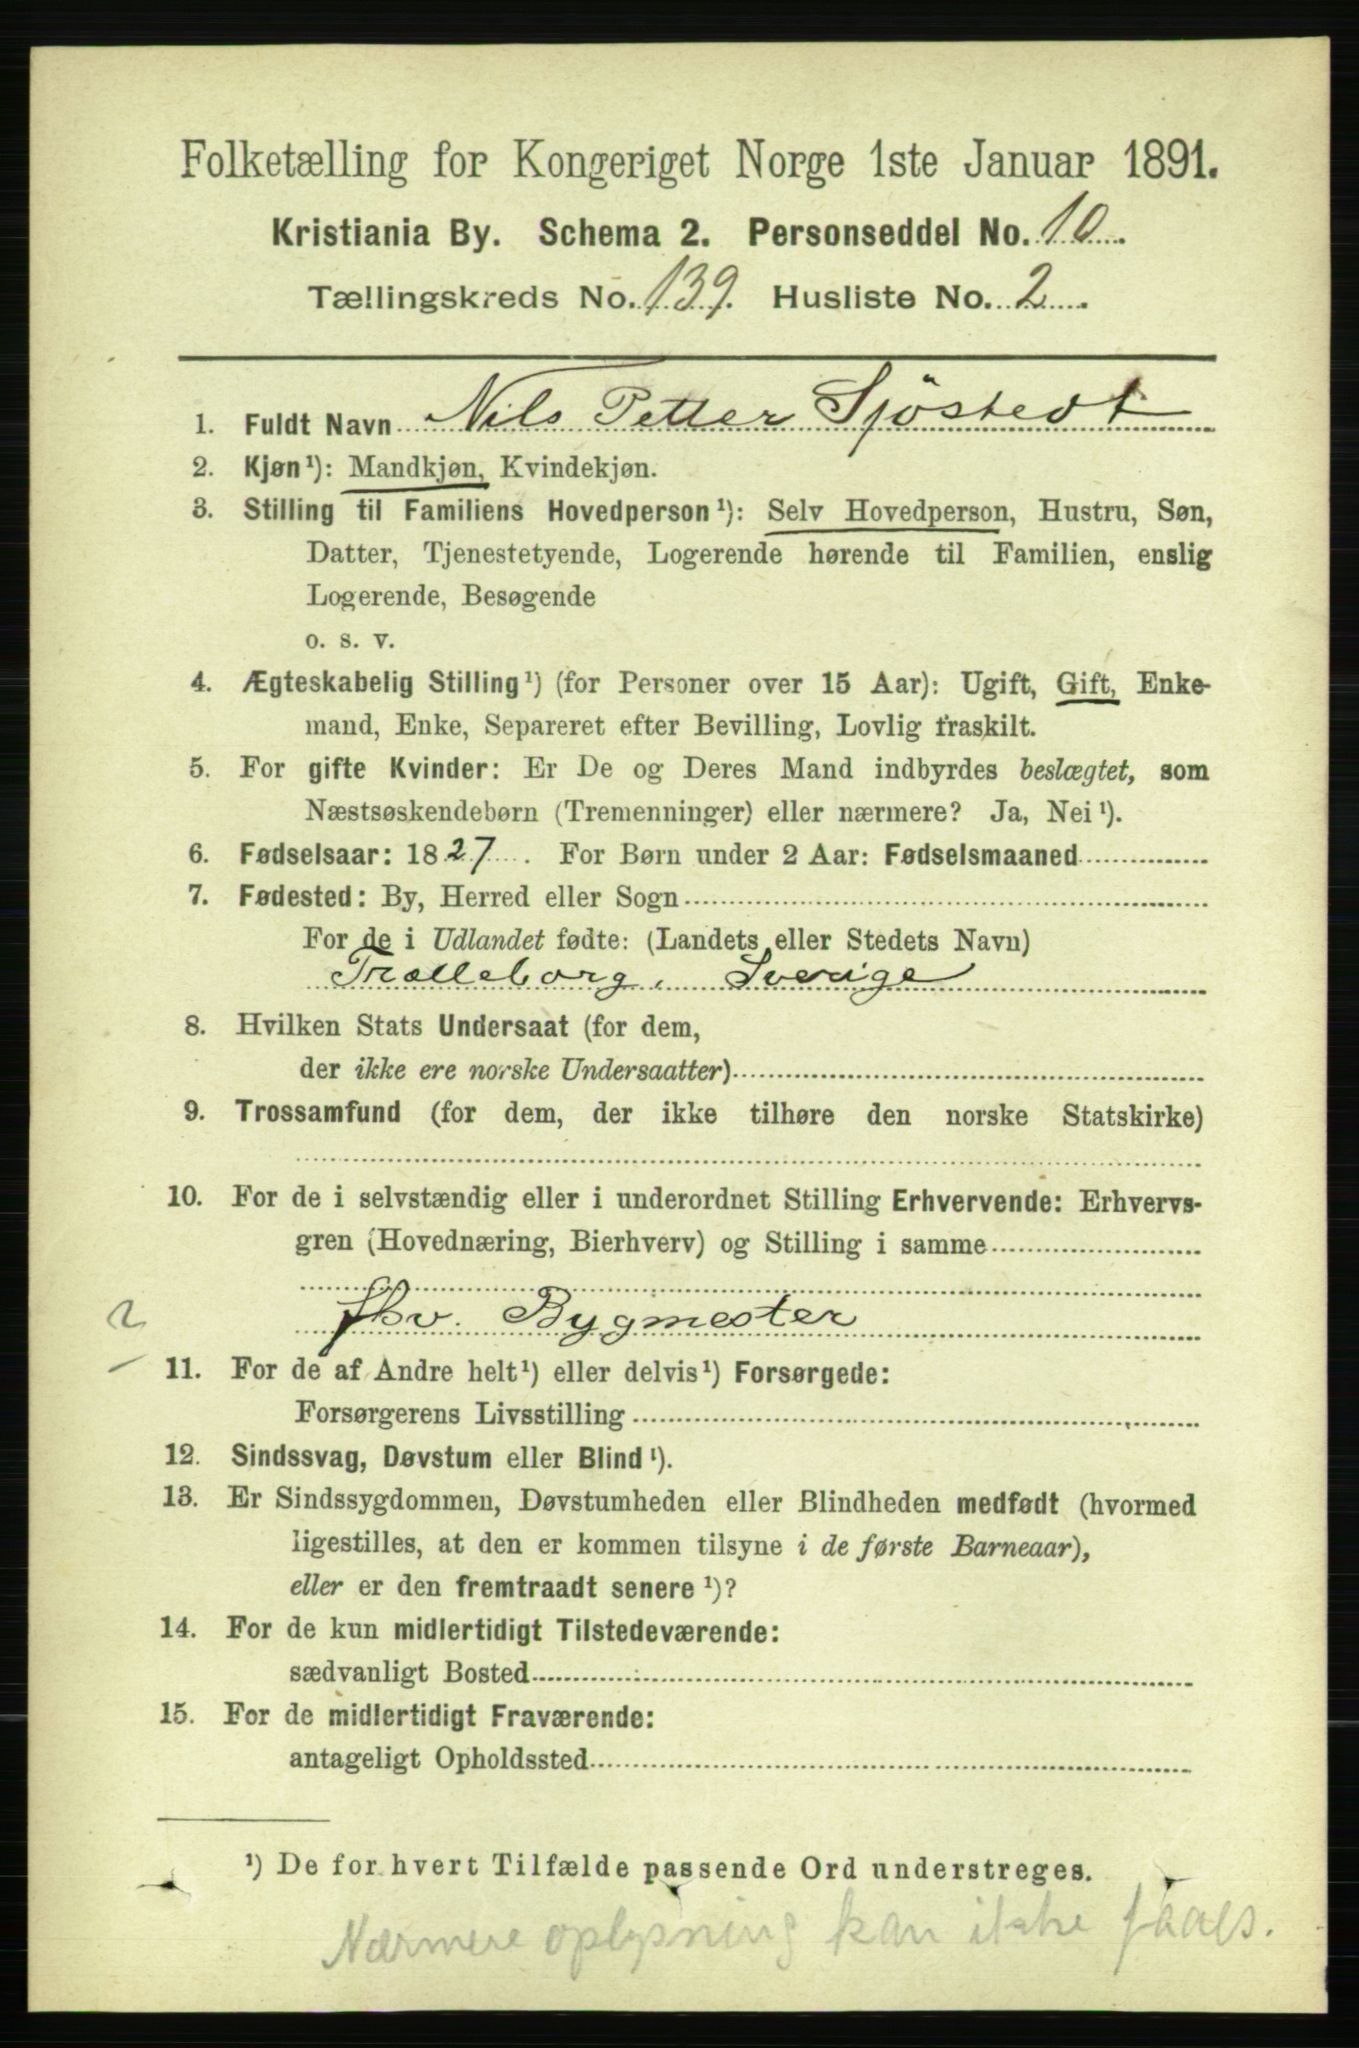 Folketælling for Kongeriget Norge 1ste Januar 1891.
Kristiania By. Schema 2. Personseddel No. 10
Tællingskreds No. 139. Husliste No. 2
1. Fuldt Navn Nils Petter Sjöstedt
2. Kjøn¹): Mandkjøn, Kvindekjøn.
3. Stilling til Familiens Hovedperson¹): Selv Hovedperson, Hustru, Søn,
Datter, Tjenestetyende, Logerende hørende til Familien, enslig
Logerende, Besøgende
o. s. v.
4. Ægteskabelig Stilling¹) (for Personer over 15 Aar): Ugift, Gift, Enke-
mand, Enke, Separeret efter Bevilling, Lovlig fraskilt.
5. For gifte Kvinder: Er De og Deres Mand indbyrdes beslægtet, som
Næstsøskendebørn (Tremenninger) eller nærmere? Ja, Nei¹).
6. Fødselsaar: 1827. For Børn under 2 Aar: Fødselsmaaned
7. Fødested: By, Herred eller Sogn
For de i Udlandet fødte: (Landets eller Stedets Navn)
Trælleborg, Sverige
8. Hvilken Stats Undersaat (for dem,
der ikke ere norske Undersaatter)
9. Trossamfund (for dem, der ikke tilhøre den norske Statskirke)
10. For de i selvstændig eller i underordnet Stilling Erhvervende: Erhvervs-
gren (Hovednæring, Bierhverv) og Stilling i samme
fhv. Bygmester
2
11. For de af Andre helt¹) eller delvis¹) Forsørgede:
Forsørgerens Livsstilling
12. Sindssvag, Døvstum eller Blind¹).
13. Er Sindssygdommen, Døvstumheden eller Blindheden medfødt (hvormed
ligestilles, at den er kommen tilsyne i de første Barneaar),
eller er den fremtraadt senere¹)?
14. For de kun midlertidigt Tilstedeværende:
sædvanligt Bosted
15. For de midlertidigt Fraværende:
antageligt Opholdssted
¹) De for hvert Tilfælde passende Ord understreges.
Nærmere oplysning kan ikke faaes.